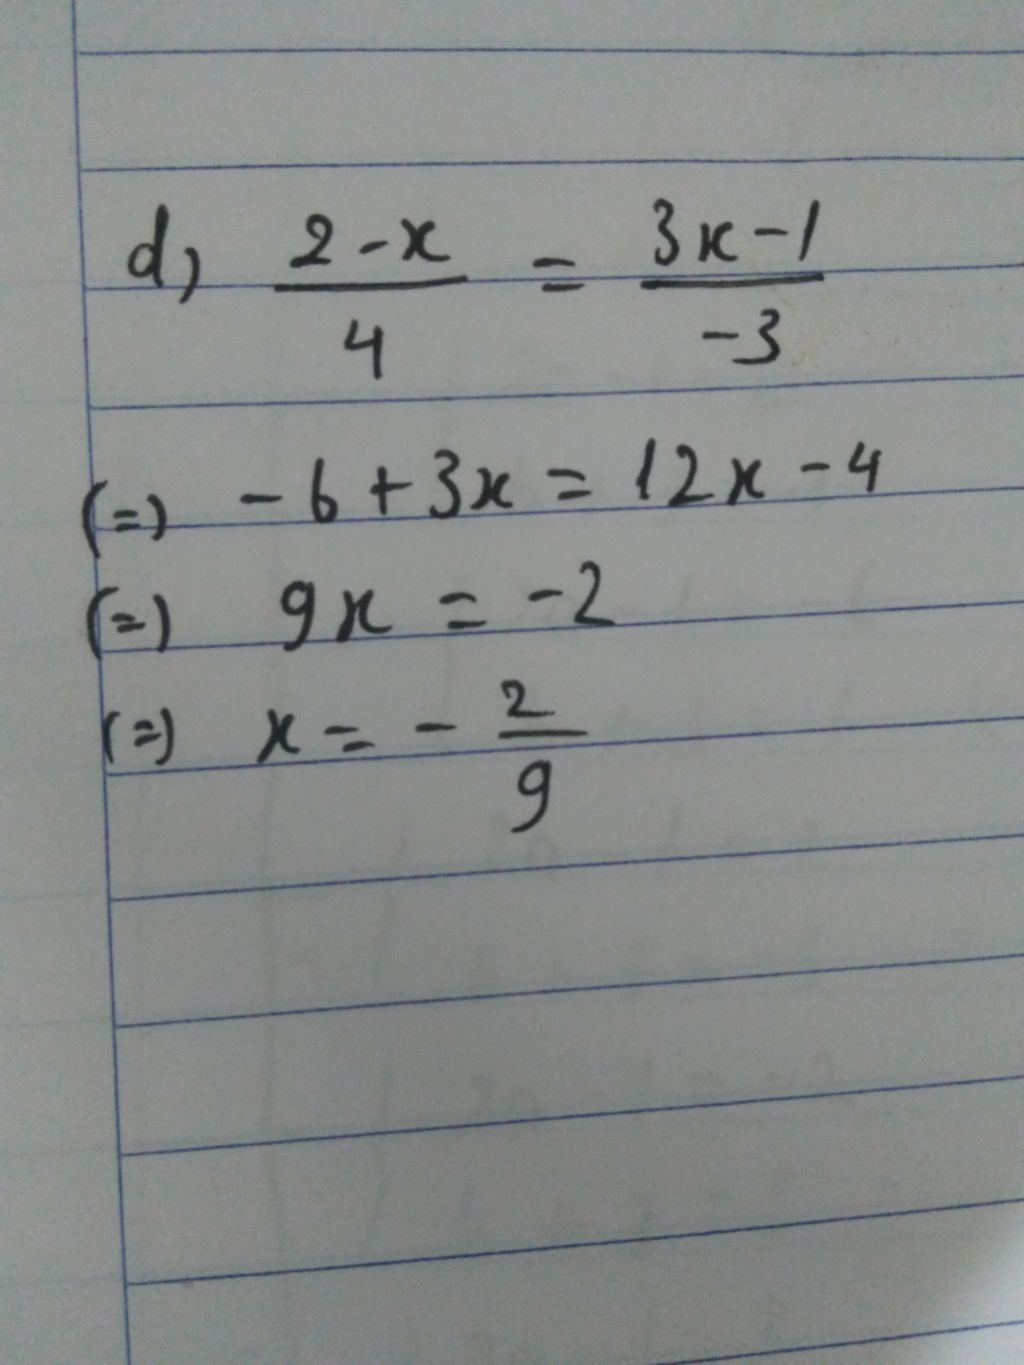 d, (2-x)/4 = (3x-1)/-3
(=) -6+3x=12x-4
(=) 9x = -2
(=) x = - 2/9